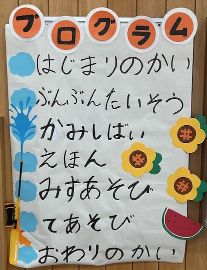 プログラム
はじまりのかい
ぶんぶんたいそう
かみしばい
えほん
みずあそび
てあそび
おわりのかい